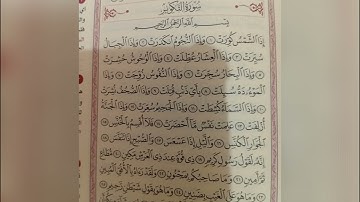 سُورَةُ التَّكْوِيرِ
بِسْمِ اللَّهِ الرَّحْمَٰنِ الرَّحِيمِ
إِذَا الشَّمْسُ كُوِّرَتْ ١ وَإِذَا النُّجُومُ انْكَدَرَتْ ٢ وَإِذَا الْجِبَالُ
سُيِّرَتْ ٣ وَإِذَا الْعِشَارُ عُطِّلَتْ ٤ وَإِذَا الْوُحُوشُ حُشِرَتْ
٥ وَإِذَا الْبِحَارُ سُجِّرَتْ ٦ وَإِذَا النُّفُوسُ زُوِّجَتْ ٧ وَإِذَا
الْمَوْءُودَةُ سُئِلَتْ ٨ بِأَيِّ ذَنْبٍ قُتِلَتْ ٩ وَإِذَا الصُّحُفُ نُشِرَتْ
١٠ وَإِذَا السَّمَاءُ كُشِطَتْ ١١ وَإِذَا الْجَحِيمُ سُعِّرَتْ ١٢ وَإِذَا الْجَنَّةُ
أُزْلِفَتْ ١٣ عَلِمَتْ نَفْسٌ مَا أَحْضَرَتْ ١٤ فَلَا أُقْسِمُ بِالْخُنَّسِ ١٥
الْجَوَارِ الْكُنَّسِ ١٦ وَاللَّيْلِ إِذَا عَسْعَسَ ١٧ وَالصُّبْحِ إِذَا تَنَفَّسَ
١٨ إِنَّهُ لَقَوْلُ رَسُولٍ كَرِيمٍ ١٩ ذِي قُوَّةٍ عِنْدَ ذِي الْعَرْشِ مَكِينٍ ٢٠ مُطَاعٍ
ثَمَّ أَمِينٍ ٢١ وَمَا صَاحِبُكُمْ بِمَجْنُونٍ ٢٢ وَلَقَدْ رَآهُ بِالْأُفُقِ الْمُبِينِ
٢٣ وَمَا هُوَ عَلَى الْغَيْبِ بِضَنِينٍ ٢٤ وَمَا هُوَ بِقَوْلِ شَيْطَانٍ رَجِيمٍ